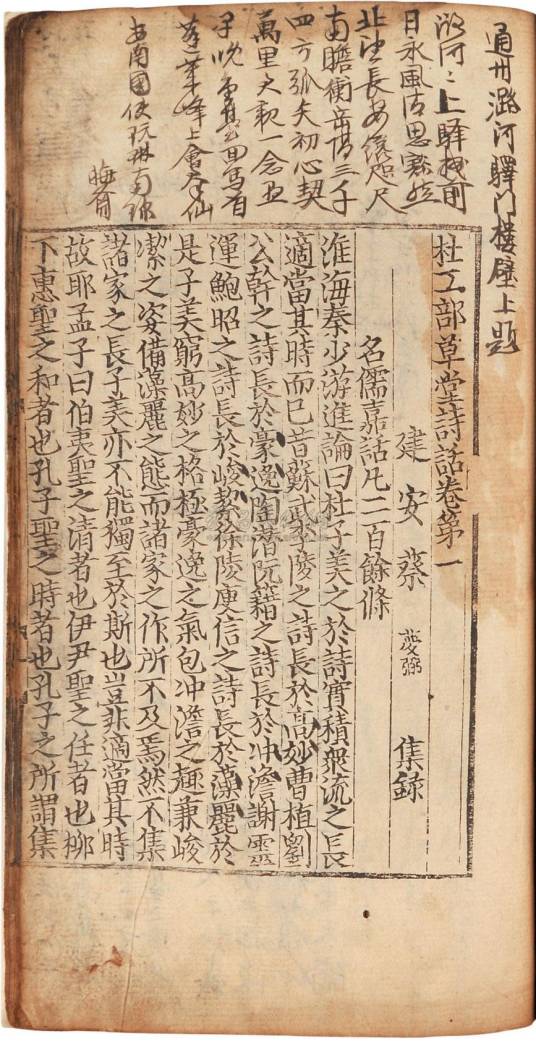 通州潞河驛門樓壁上題
潞河河上驛樓前
日永風清思豁然
北望長安纔咫尺
南瞻衡岳隔三千
四方弧矢初心契
萬里
蓬萊峰上會群仙
安南國使阮
杜工部草堂詩話卷第一
建安蔡夢弼集錄
名儒嘉話凡二百餘條
淮海秦少游進論曰杜子美之於詩實積衆流之長
適當其時而已昔蘇武李陵之詩長於高妙曹植劉
公幹之詩長於豪逸陶潛阮籍之詩長於冲澹謝靈
運鮑昭之詩長於峻潔徐陵庾信之詩長於藻麗於
是子美窮高妙之格極豪逸之氣包冲澹之趣兼峻
潔之姿備藻麗之態而諸家之作所不及焉然不集
諸家之長子美亦不能獨至於斯也豈非適當其時
故耶孟子曰伯夷聖之清者也伊尹聖之任者也柳
下惠聖之和者也孔子聖之時者也孔子之所謂集